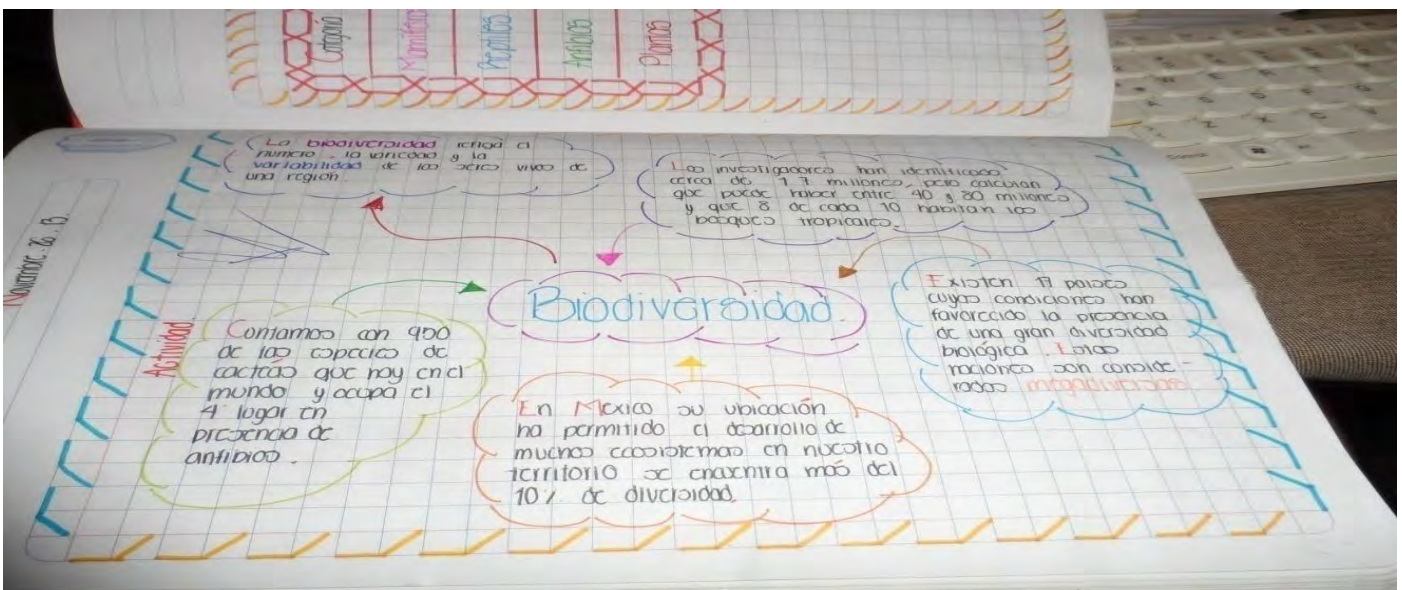 Categoría
Mamíferos
Reptiles
Anfibios
Plantas
Noviembre 26, 13
Actividad
La biodiversidad refleja el
numero, la variedad y la
variabilidad de los seres vivos de
una región.
Los investigadores han identificado
cerca de 1.7 millones, pero calculan
que puede haber entre 40 y 80 millones
y que 8 de cada 10 habitan los
bosques tropicales.
Biodiversidad.
Contamos con 900
de las especies de
cacteas que hay en el
mundo y ocupa el
4° logar en
presencia de
anfibios.
En Mexico su ubicación
ha permitido el desarrollo de
muchos ecosistemas en nuestro
territorio se encuentra más del
10% de diversidad.
Existen 17 paises
cuyas condiciones han
favorecido la presencia
de una gran diversidad
biológica. Estas
naciones son conside-
radas megadiversas